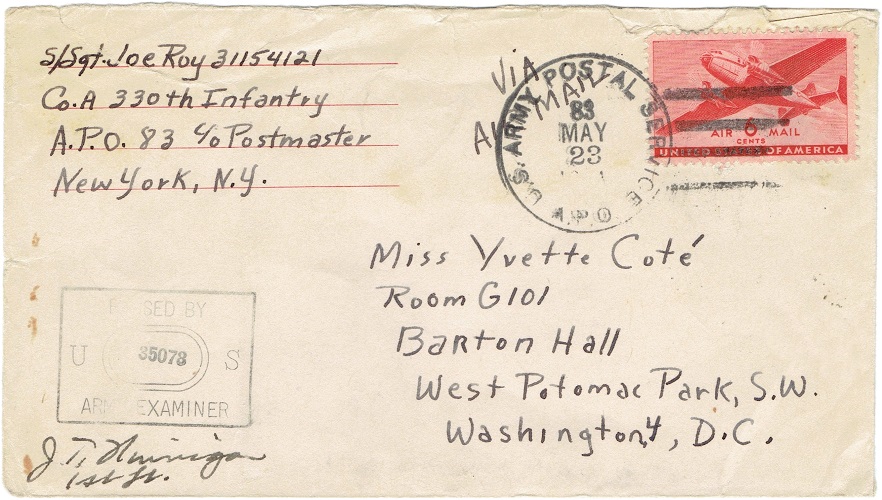 S/Sgt. Joe Roy 31154121
Co. A 330th Infantry
A.P.O. 83 c/o Postmaster
New York, N.Y.
VIA
AIR MAIL
U.S. ARMY POSTAL SERVICE
83
MAY
23
A.P.O
AIR 6 MAIL
CENTS
UNITED STATES OF AMERICA
Miss Yvette Coté
Room G101
Barton Hall
West Potomac Park, S.W.
Washington, 4, D.C.
PASSED BY
U 35073 S
ARMY EXAMINER
J. T.
1st Lt.